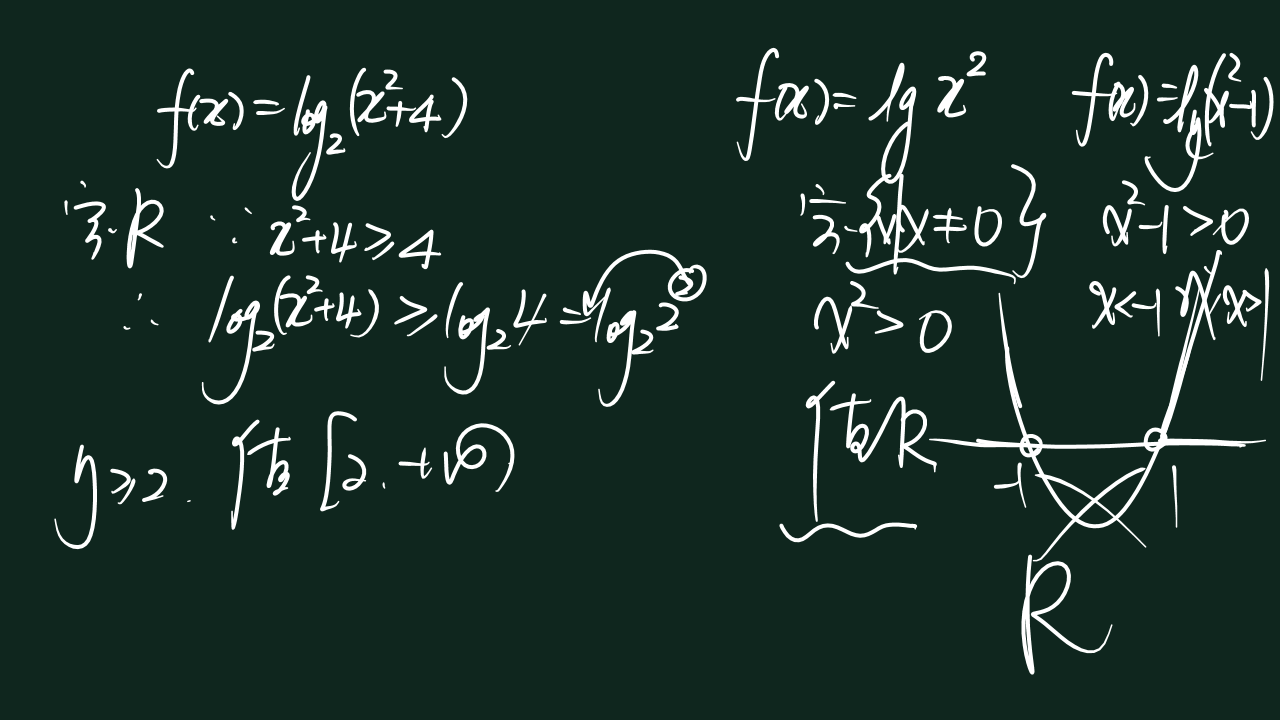 f(x)=log₂(x²+4)
定:R ∵ x²+4≥4
∴ log₂(x²+4)≥log₂4=log₂2²
y≥2. 值[2,+∞)
f(x)=lg x²
定:{x|x≠0}
x²>0
值R
f(x)=lg(x²-1)
x²-1>0
x<-1 或 x>1
-1 1
R